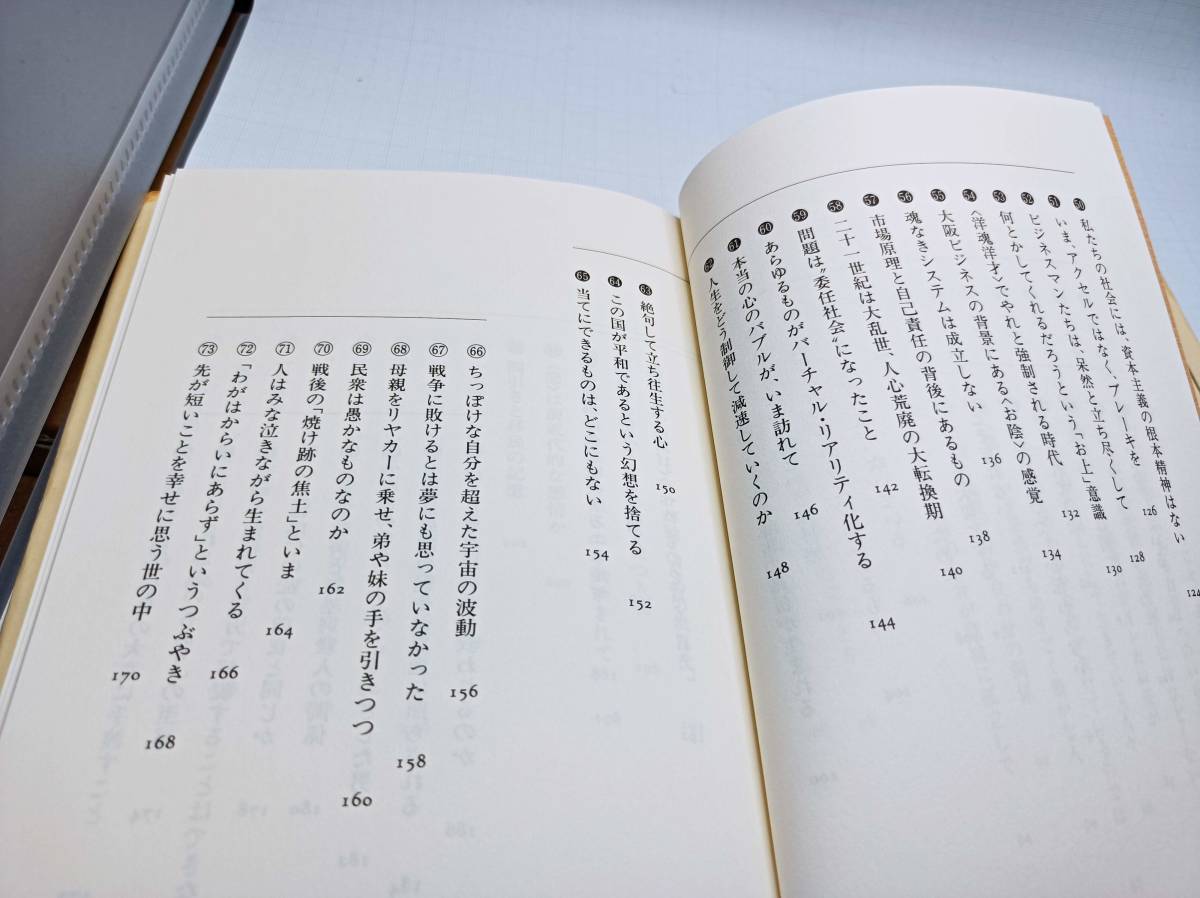 ㊿ 私たちの社会には、資本主義の根本精神はない 124
51 いま、アクセルではなく、ブレーキを 126
52 ビジネスマンたちは、呆然と立ち尽くして 128
53 何とかしてくれるだろうという「お上」意識 130
54 〈洋魂洋才〉でやれと強制される時代 132
55 大阪ビジネスの背景にある〈お陰〉の感覚 134
56 魂なきシステムは成立しない 136
57 市場原理と自己責任の背後にあるもの 138
58 二十一世紀は大乱世、人心荒廃の大転換期 140
59 問題は“委任社会”になったこと 142
60 あらゆるものがバーチャル・リアリティ化する 144
61 本当の心のバブルが、いま訪れて 146
62 人生をどう制御して減速していくのか 148
63 絶句して立ち往生する心 150
64 この国が平和であるという幻想を捨てる 152
65 当てにできるものは、どこにもない 154
66 ちっぽけな自分を超えた宇宙の波動 156
67 戦争に敗けるとは夢にも思っていなかった 158
68 母親をリヤカーに乗せ、弟や妹の手を引きつつ 160
69 民衆は愚かなものなのか 162
70 戦後の「焼け跡の焦土」といま 164
71 人はみな泣きながら生まれてくる 166
72 「わがはからいにあらず」というつぶやき 168
73 先が短いことを幸せに思う世の中 170